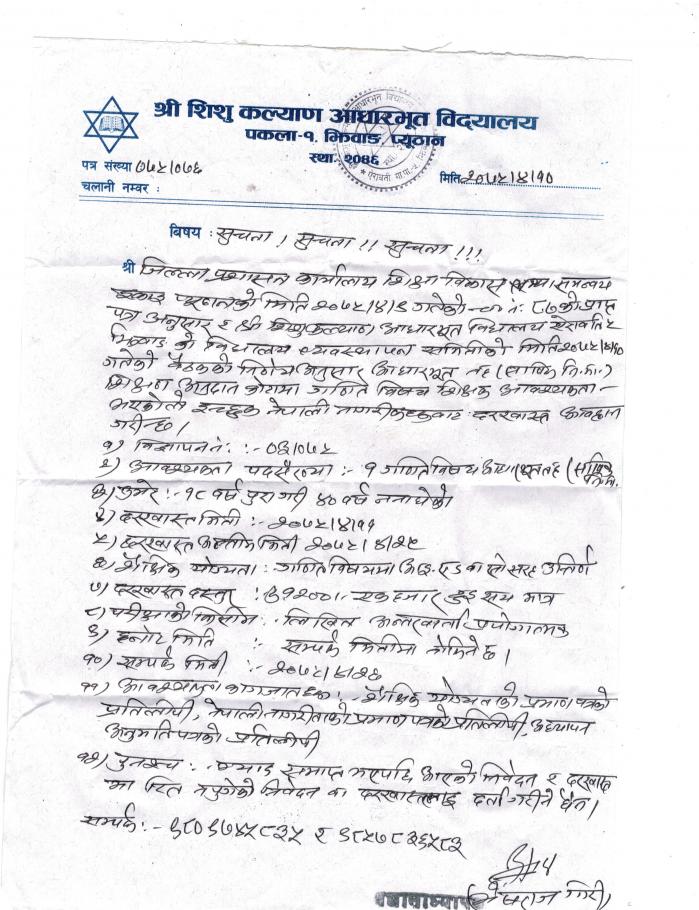 श्री शिशु कल्याण आधारभूत विद्यालय
पकला-१, झिवाङ प्यूठान
स्था. २०४६
पत्र संख्या ७५/०७६
चलानी नम्वर :
मिति २०७५/४/१०
विषय : सुचना ! सुचना !! सुचना !!!
श्री जिल्ला प्रशासन कार्यालय शिक्षा विकास तथा समन्वय
प्यूठानको मिति २०७५/४/ गतेको च.नं. ८७ को प्राप्त
पत्र अनुसार र श्री शिशु कल्याण आधारभूत विद्यालय ऐरावति १
झिवाङ को विद्यालय व्यवस्थापन समितीको मिति २०७५/४/१०
गतेको बैठकको निर्णय अनुसार आधारभूत तह (साविक नि.मा.)
शिक्षण अनुदान कोटामा गणित विषय शिक्षक आवश्यकता
भएकोले इच्छुक नेपाली नागरीकहरुबाट दरखास्त आवहान
गरीन्छ ।
१) विज्ञापन नं. :- ०३/०७५
२) आवश्यकता पदसंख्या :- १ गणित विषय आधारभूत तह (साविक नि.मा.
३) उमेर :- १८ वर्ष पुरा गरी ४० वर्ष ननाघेको
४) दरखास्त मिती :- २०७५/४/११
५) दरखास्त अन्तीम मिती २०७५/४/२५
६) शैक्षिक योग्यता : गणित विषयमा आइ.एड वा सो सरह उत्तिर्ण
७) दरखास्त दस्तुर : रु १२००।- एक हजार दुई सय मात्र
८) परीक्षाको किसीम :- लिखित अन्तरवार्ता प्रयोगात्मक
९) छनोट मिति :- सम्पर्क मितीमा तोकिने छ ।
१०) सम्पर्क मिती :- २०७५/४/२६
११) आवश्यक कागजातहरु :- शैक्षिक योग्यताको प्रमाण पत्रको
प्रतिलिपी, नेपाली नागरीताको प्रमाण पत्रको प्रतिलिपी, अध्यापन
अनुमति पत्रको प्रतिलीपी
१२) पुनश्च :- म्याद समाप्त भएपछि आएको निवेदन र दरखास्त
मा रित नपुगेको निवेदन वा दरखास्तलाइ दर्ता गरीने छैन ।
सम्पर्क :- ९८०६७४५८३५ र ९८५७८३६५८३
राज गिरी)
प्रधानाध्यापक